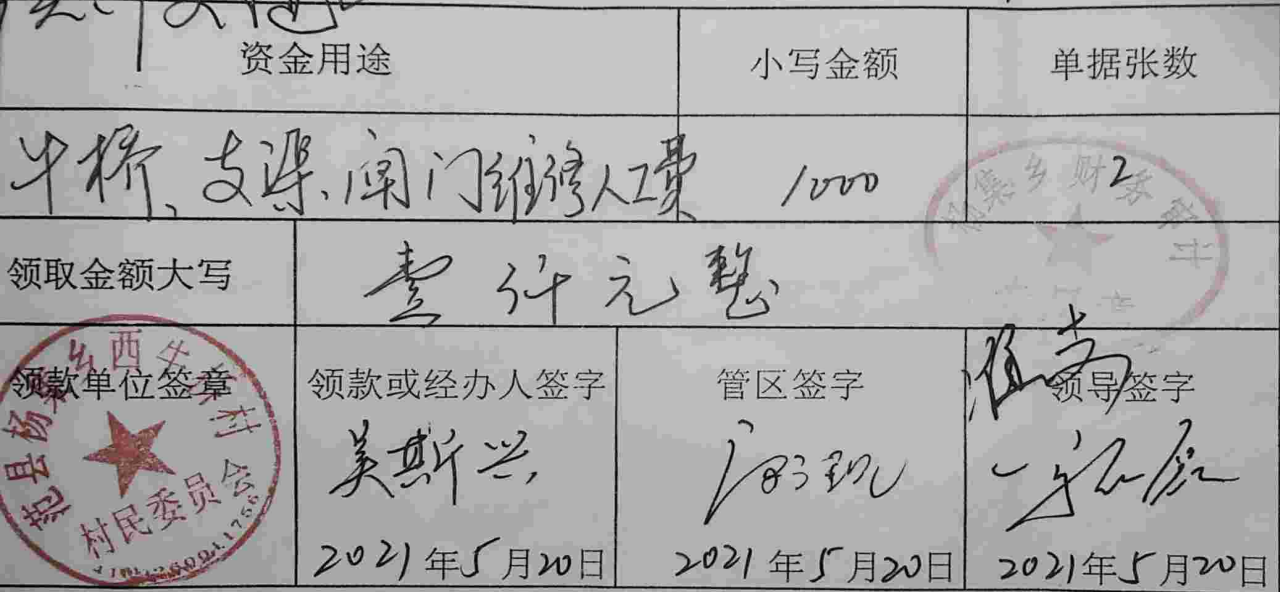 资金用途 小写金额 单据张数
牛桥、支渠、闸门维修人工费 1000 2
杨集乡财务审计
领取金额大写 壹仟元整
领款单位签章 领款或经办人签字 管区签字 领导签字
吴斯兴
范县杨集乡西 村
村民委员会
2021年5月20日 2021年5月20日 2021年5月20日